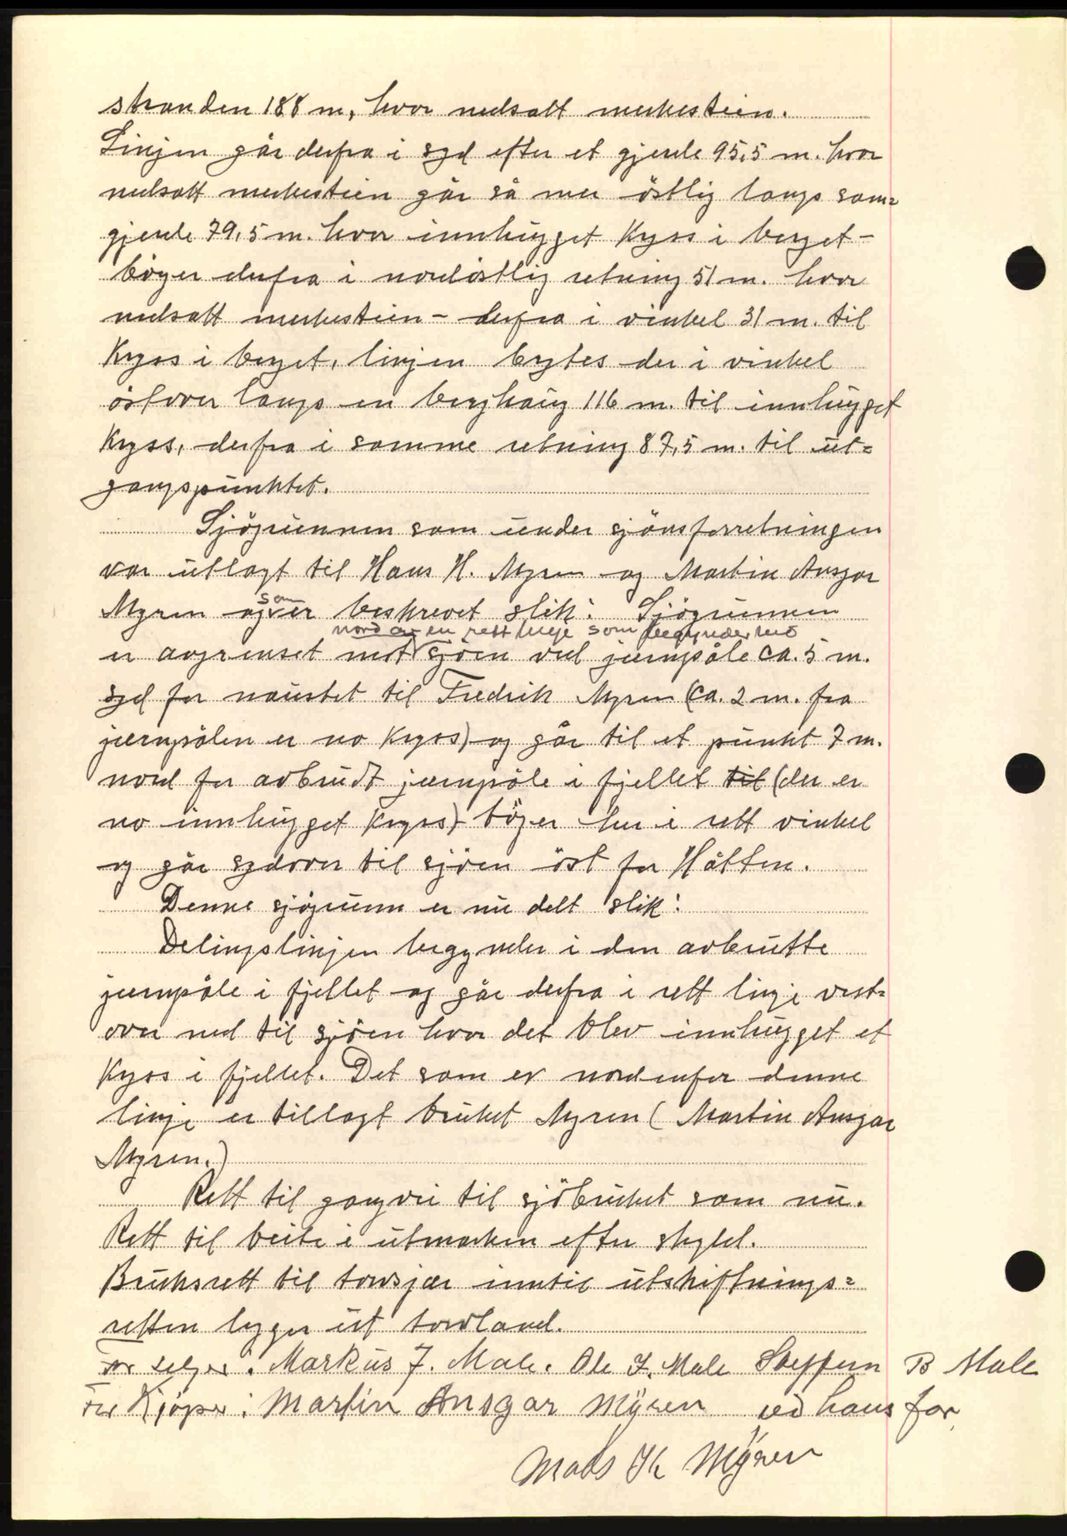 stranden 188 m, hvor nedsatt merkestein.
Linjen går derfra i syd efter et gjerde 95,5 m. hvor
nedsatt merkestein går så mer östlig langs sam=
gjerde 79,5 m. hvor innhugget Kyss i berget -
böyer derfra i nordöstlig retning 51 m. hvor
nedsatt merkestein - derfra i vinkel 31 m. til
Kryss i berget, linjen brytes der i vinkel
östover langs en berghang 116 m. til innhugget
Kryss, derfra i samme retning 87,5 m. til ut=
gangspunktet.
Sjögrunnen som under sjönsforretningen
var utlagt til Hans H. Myren og Martin Ansgar
som
Myren og er beskrevet slik: Sjögrunnen
nord av en rett linje som begynder ved
er avgrenset mot sjöen ved jernpåle ca. 5 m.
syd for naustet til Fredrik Myren (ca. 2 m. fra
jernpålen er no Kryss) og går til et punkt 7 m.
nord for avbrudt jernpåle i fjellet til (der er
no innhugget Kryss) böyer her i rett vinkel
og går sydover til sjöen öst for Håtten.
Denne sjögrunn er nu delt slik:
Delingslinjen begynder i den avbrutte
jernpåle i fjellet og går derfra i rett linje vest=
over ned til sjöen hvor det blev innhugget et
Kyss i fjellet. Det som er nordenfor denne
linje er tillagt bruket Myren (Martin Ansgar
Myren.)
Rett til gangvei til sjöbruket som nu.
Rett til beite i utmarken efter skyld.
Bruksrett til torvsjær inntil utskiftnings=
retten legger ut torvland.
For selger: Markus J. Male. Ole J. Male Steffen B Male
For Kjøper: Martin Ansgar Myren ved hans far
Mads K Myren